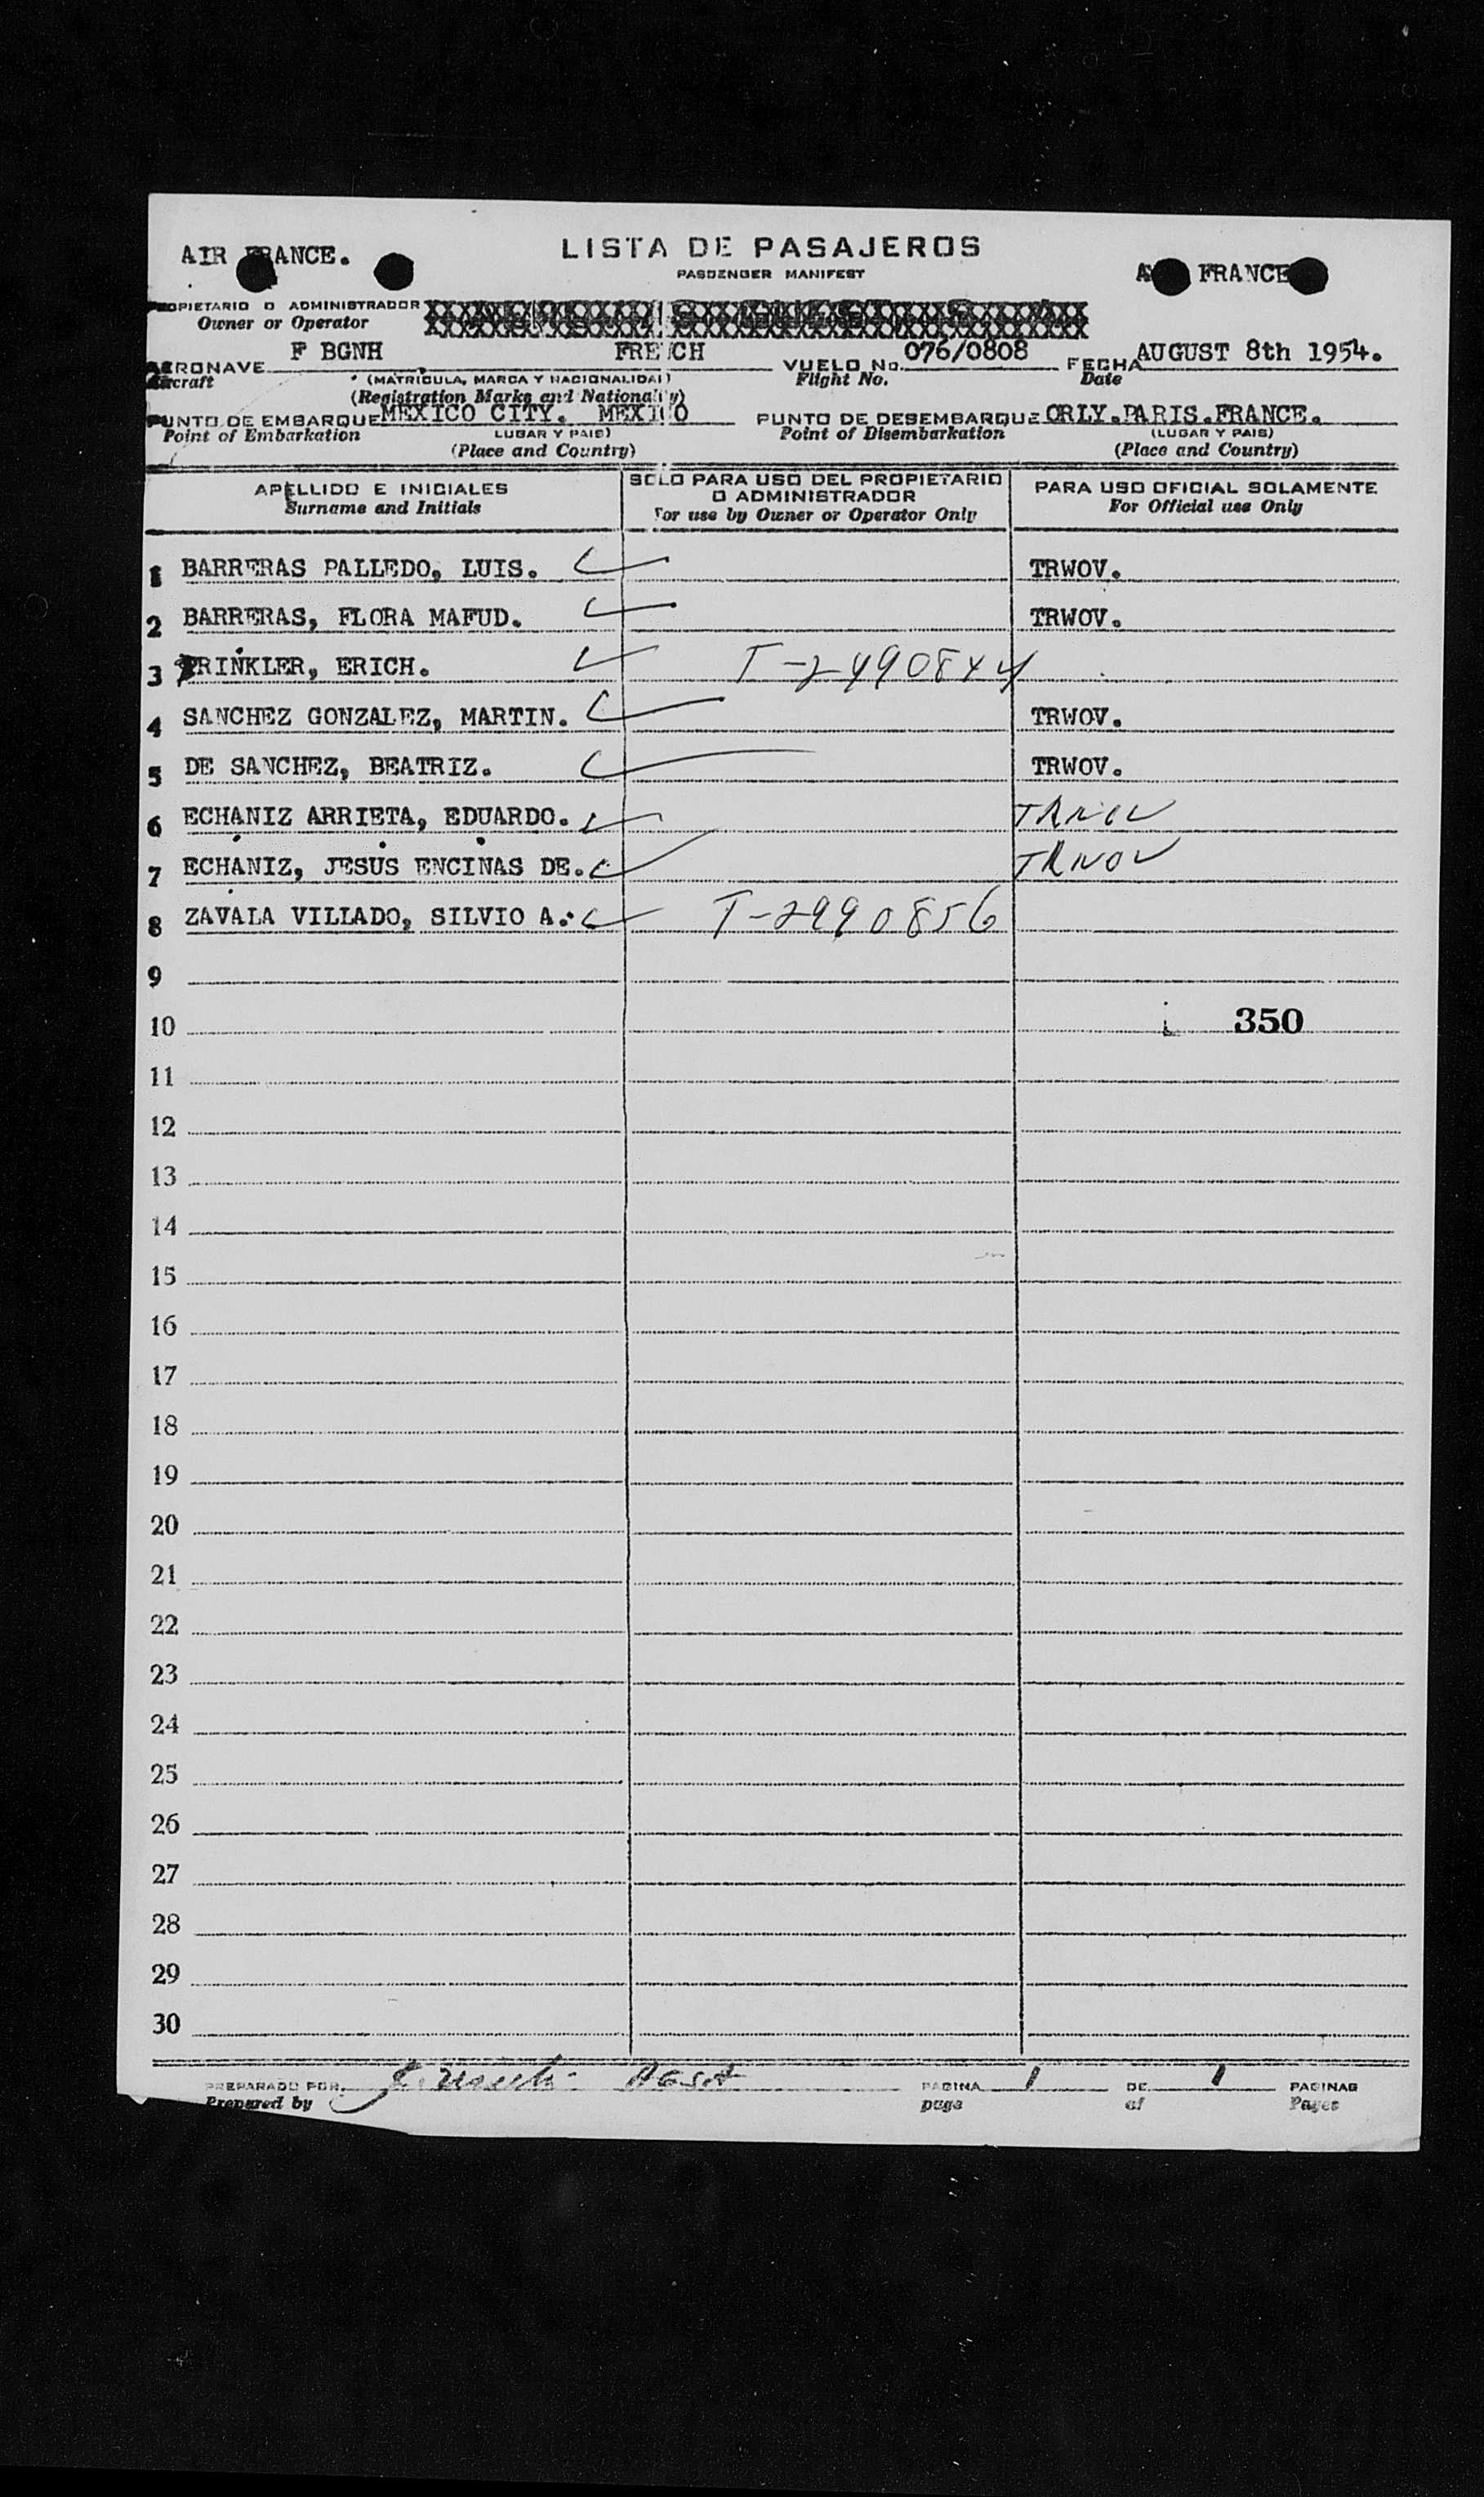 AIR FRANCE.
LISTA DE PASAJEROS
PASSENGER MANIFEST
FRANCE
PROPIETARIO O ADMINISTRADOR
Owner or Operator
AERONAVE F BGNH FRENCH VUELO No. 076/0808 FECHA AUGUST 8th 1954.
Aircraft (MATRICULA, MARCA Y NACIONALIDAD) Flight No. Date
(Registration Marks and Nationality)
PUNTO DE EMBARQUE MEXICO CITY. MEXICO PUNTO DE DESEMBARQUE ORLY.PARIS.FRANCE.
Point of Embarkation LUGAR Y PAIS) Point of Disembarkation (LUGAR Y PAIS)
(Place and Country) (Place and Country)
APELLIDO E INICIALES
Surname and Initials
SOLO PARA USO DEL PROPIETARIO
O ADMINISTRADOR
For use by Owner or Operator Only
PARA USO OFICIAL SOLAMENTE
For Official use Only
1 BARRERAS PALLEDO, LUIS. TRWOV.
2 BARRERAS, FLORA MAFUD. TRWOV.
3 RINKLER, ERICH.
4 SANCHEZ GONZALEZ, MARTIN. TRWOV.
5 DE SANCHEZ, BEATRIZ. TRWOV.
6 ECHANIZ ARRIETA, EDUARDO.
7 ECHANIZ, JESUS ENCINAS DE.
8 ZAVALA VILLADO, SILVIO A. T-2990856
9
10 350
11
12
13
14
15
16
17
18
19
20
21
22
23
24
25
26
27
28
29
30
PREPARADO POR. PAGINA 1 DE 1 PAGINAS
Prepared by page of Pages